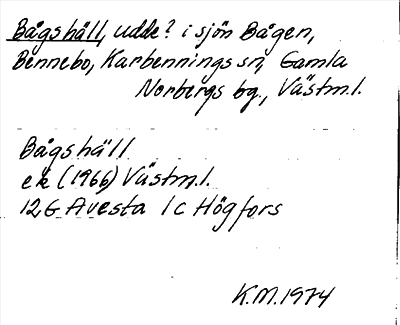 Bågshäll, udde? i sjön Bågen,
Bennebo, Karbennings sn, Gamla
Norbergs bg., Västm.l.
Bågshäll
ek (1966) Västm.l.
12G Avesta 1c Högfors
K.M. 1974